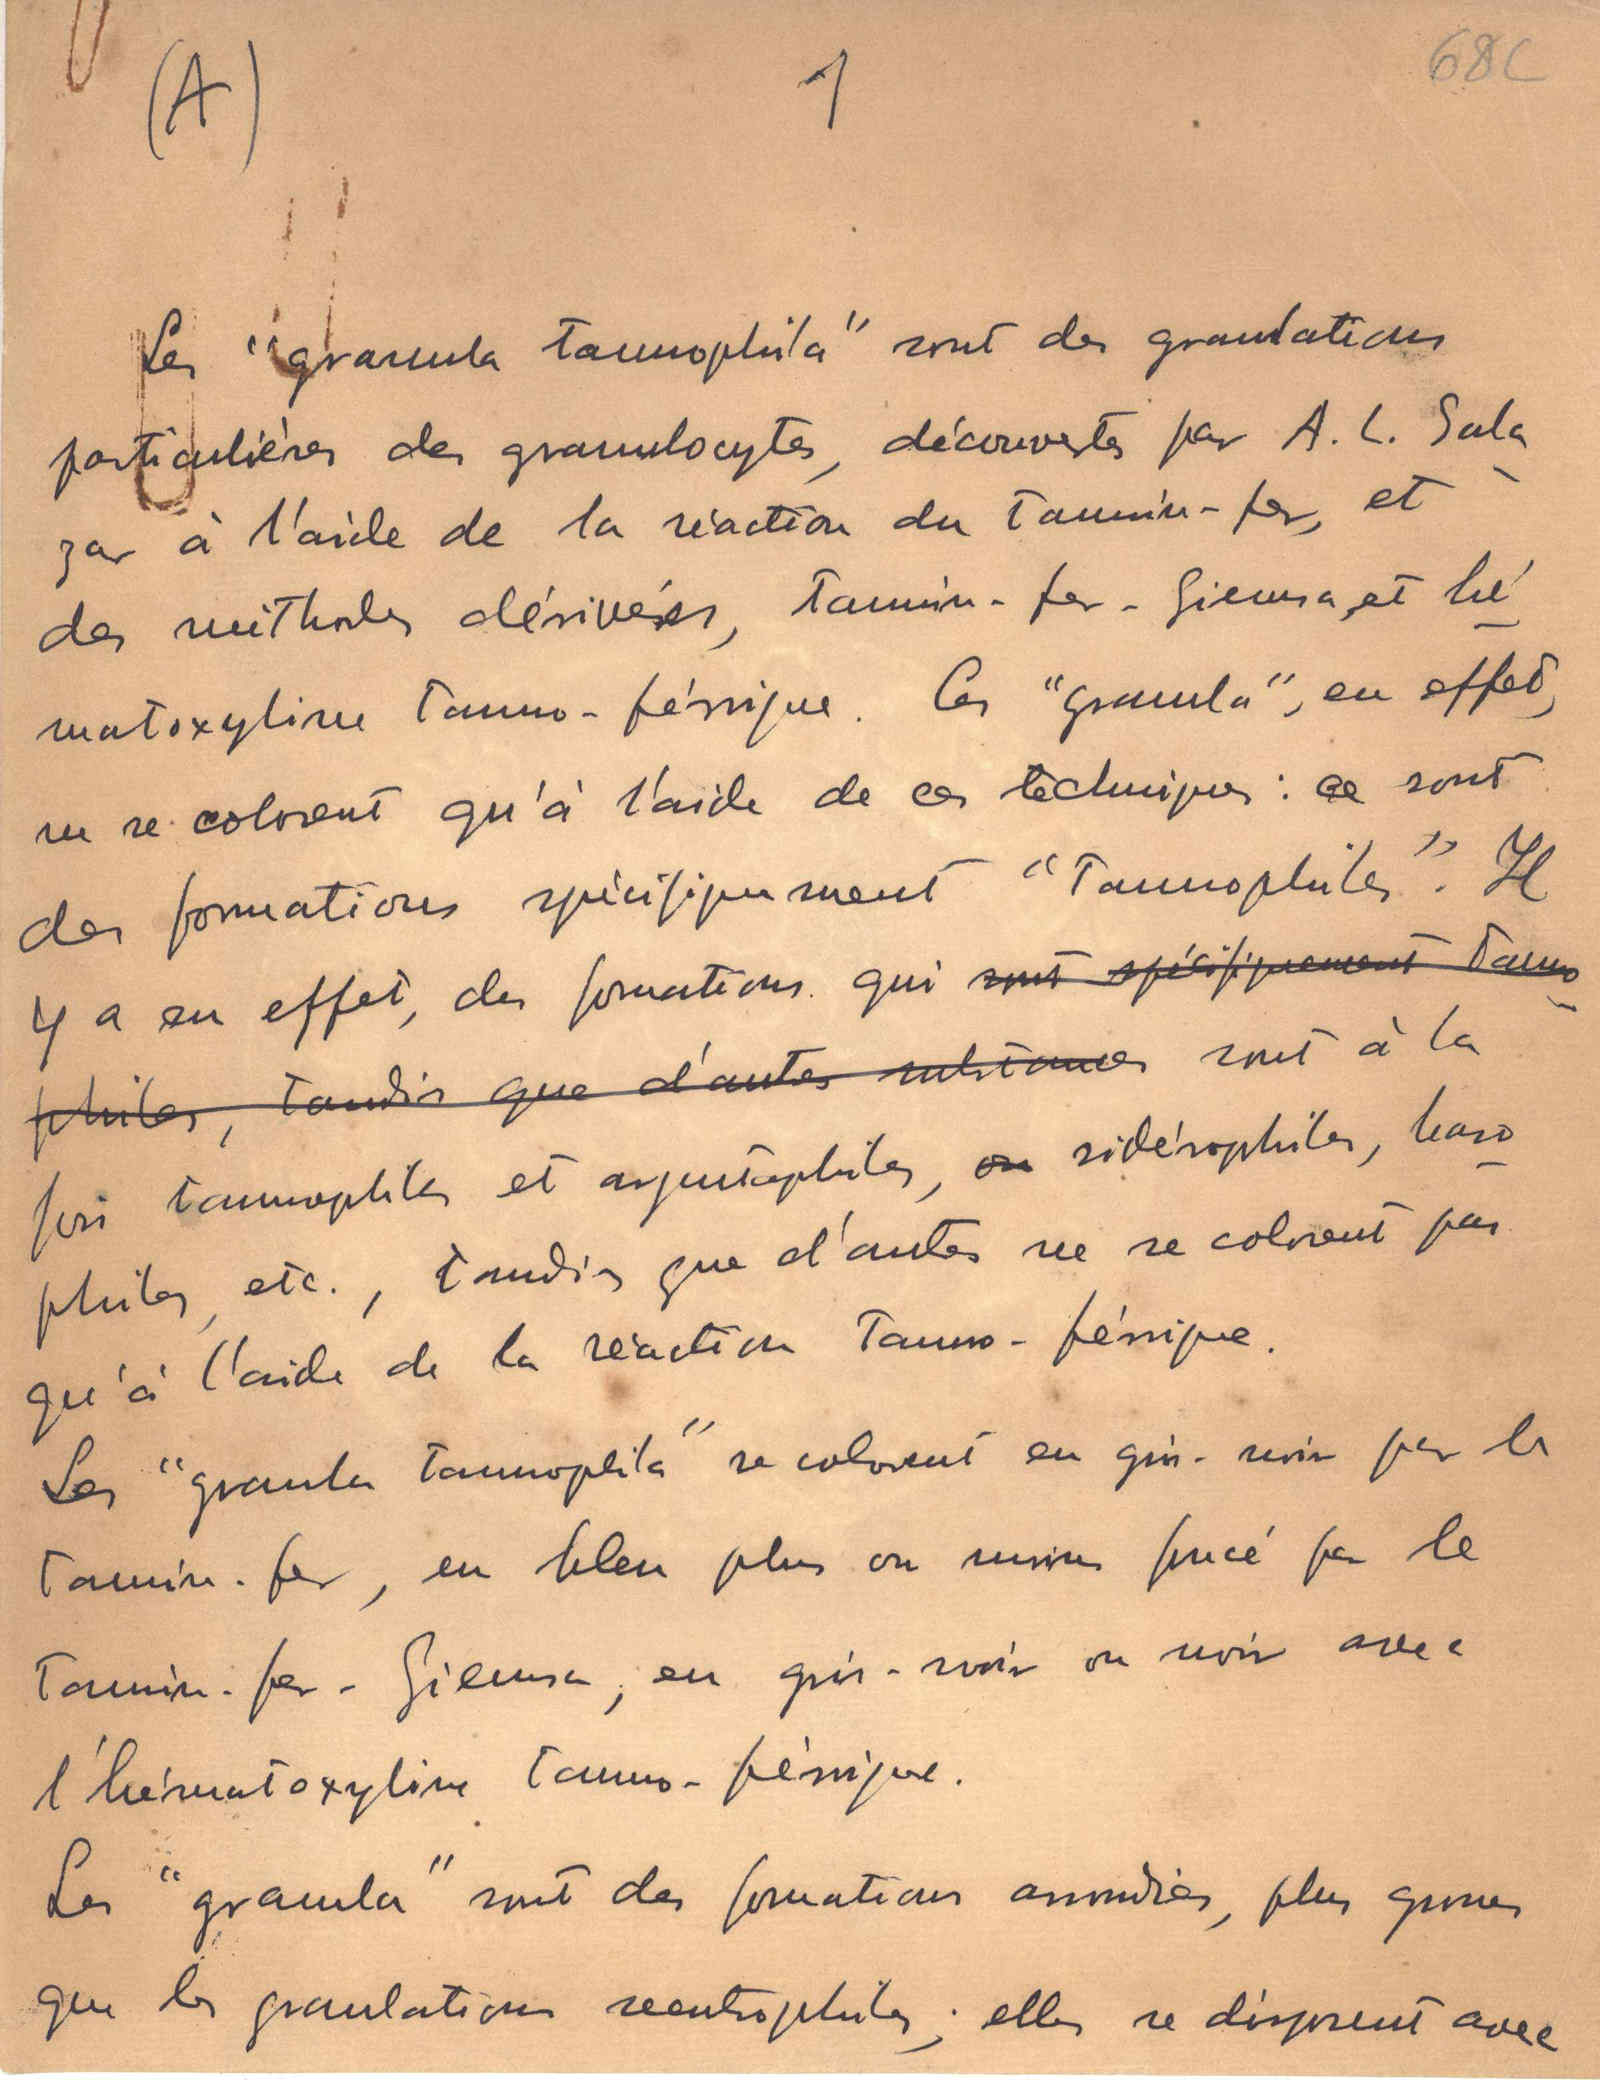 (A) 1 68C
Les "granula tannophila" sont des granulations
particulières des granulocytes, découvertes par A. L. Sala
zar à l'aide de la réaction du tannin-fer, et
des méthodes dérivées, tannin-fer-Giemsa, et hé
matoxyline tanno-férrique. Ces "granula", en effet,
ne se colorent qu'à l'aide de ces techniques: ce sont
des formations spécifiquement "tannophiles". Il
y a en effet, des formations qui sont spécifiquement tanno
philes, tandis que d'autes substances sont à la
fois tannophiles et argentaphiles, ou sidérophiles, baso
philes, etc., tandis que d'autes ne se colorent pas
qu'à l'aide de la réaction tanno-férrique.
Les "granula tannophila" se colorent en gris-noir par le
tannin-fer, en bleu plus ou moins foncé par le
tannin-fer-Giemsa, en gris-noir ou noir avec
l'hématoxyline tanno-férrique.
Les "granula" sont des formations arrondies, plus grosses
que les granulations neutrophiles; elles se disposent avec